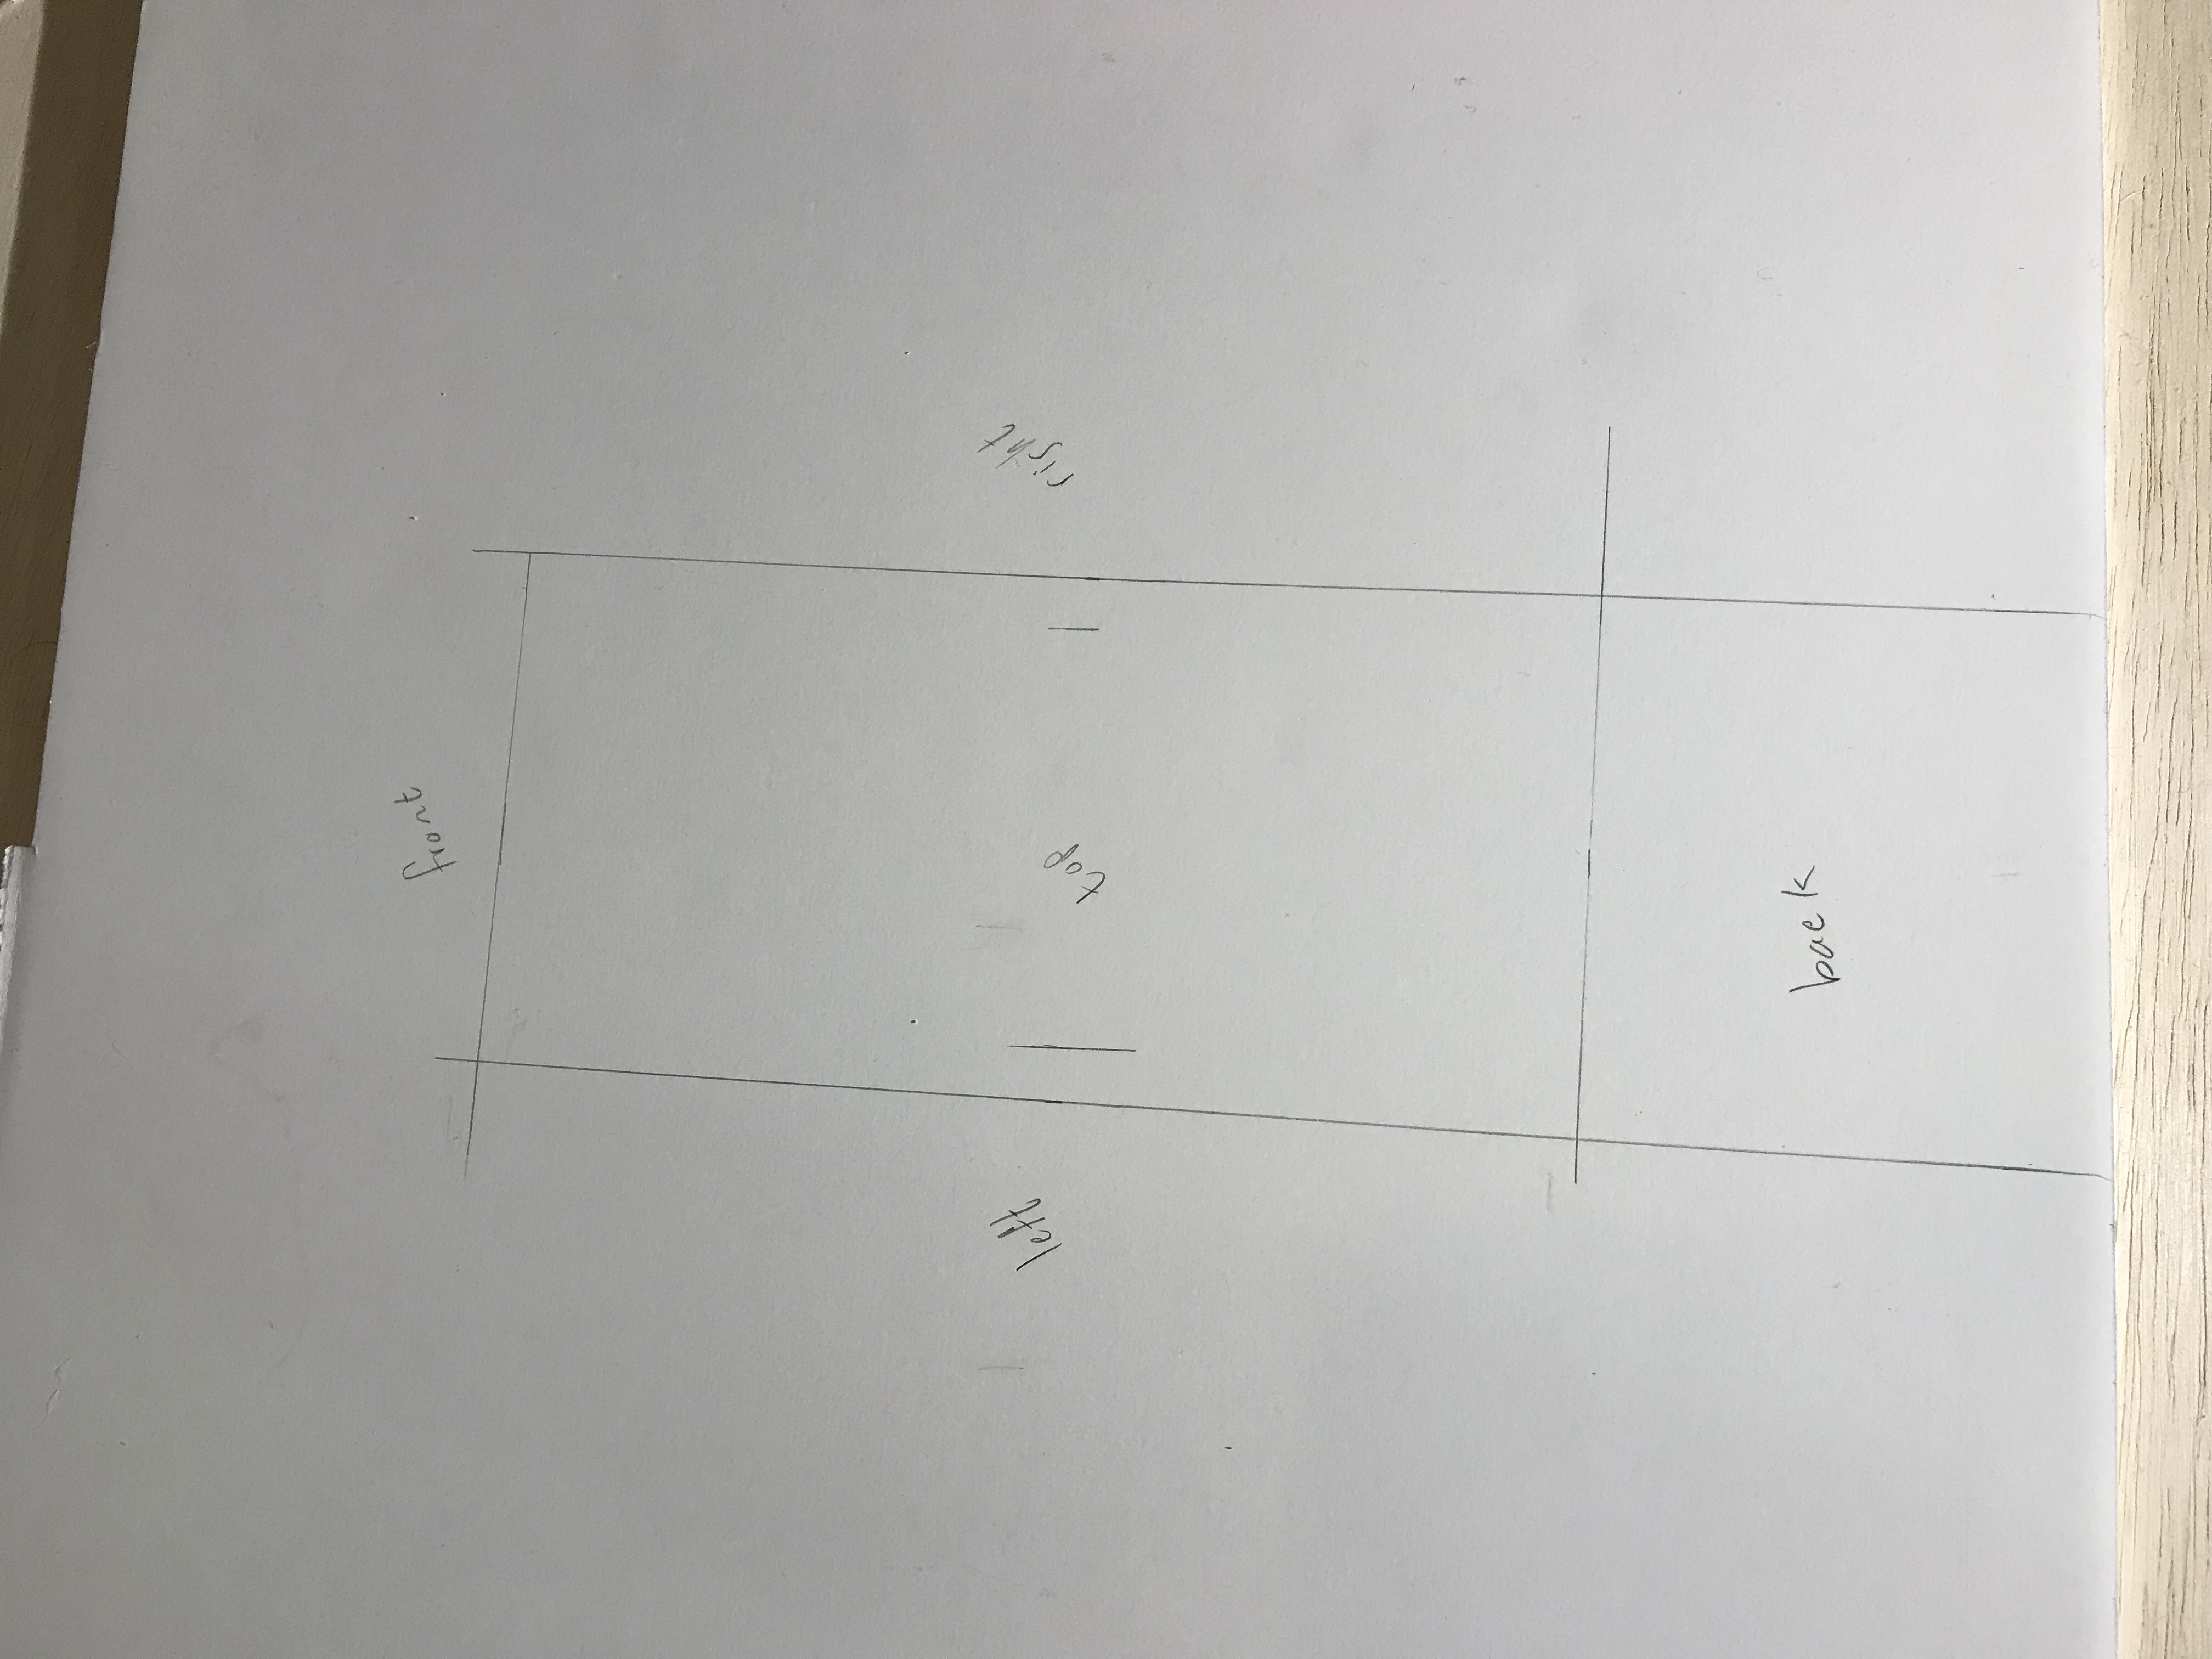 front
left
top
right
back